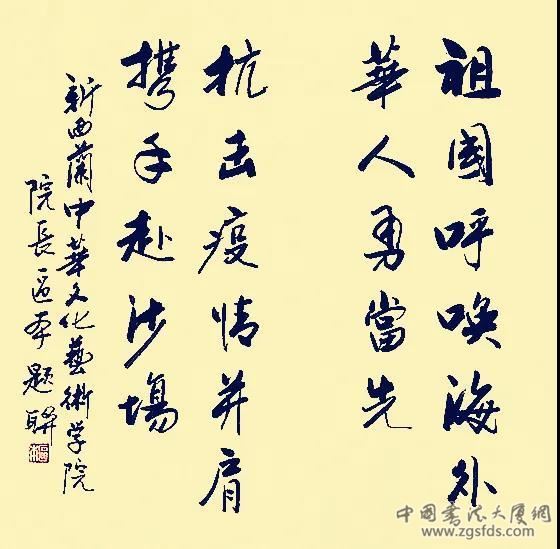 祖國呼喚海外
華人勇當先
抗击疫情并肩
携手赴沙場
新西蘭中華文化藝術学院
院長區本題聯
中國書法大厦網
www.zgsfds.com